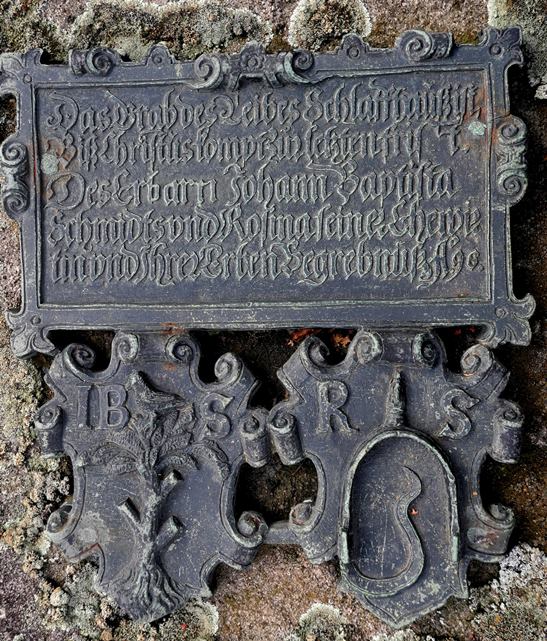 Das Grab des Leibes Schlaffhauß ist
Biß Christus kompt zu letzten frist
Des Erbarn Johann Baptista
Schmidts vnd Rosina seiner Ehewir
tin vnd Ihrer Erben Begrebnuß Ao.
IB S R S